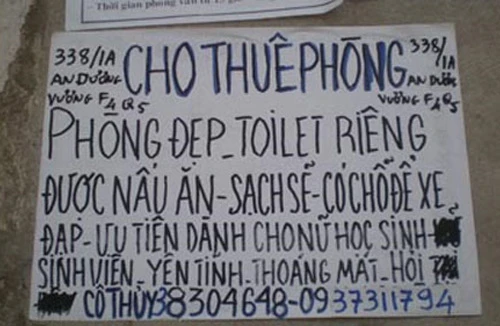 Thời gian phỏng vấn từ 15 gi
338/1A
AN DƯƠNG
VƯƠNG F4 Q5
CHO THUÊ PHÒNG
338/1A
AN DƯƠNG
VƯƠNG F4 Q5
PHÒNG ĐẸP_TOILET RIÊNG
ĐƯỢC NẤU ĂN-SẠCH SẼ-CÓ CHỖ ĐỂ XE
ĐẠP-ƯU TIÊN DÀNH CHO NỮ HỌC SINH-
SINH VIÊN_YÊN TĨNH_THOÁNG MÁT_HỎI
CÔ THỦY 38304648-0937311794